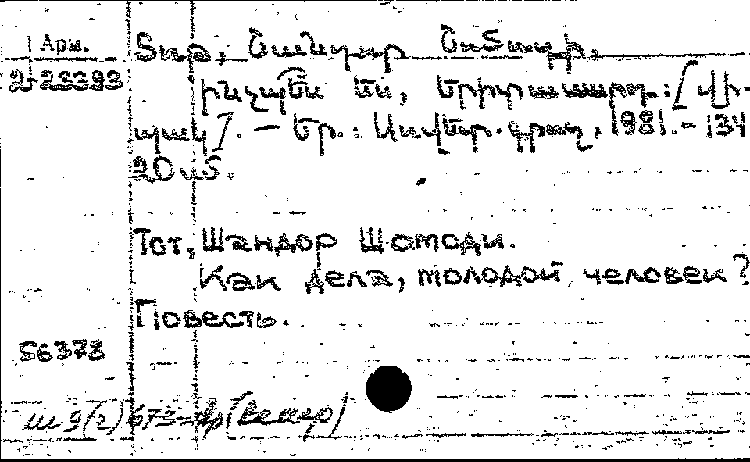 Арм.
2-23393
Տար, Շանդոր Շոմոդի.
Ինչպե՞ս ես, երիտասարդ: [Վի-
պակ]. — Եր.: Սովետ. գրող, 1981. - 134
20 սմ.
Тот, Шандор Шомоди.
Как дела, молодой человек?
Повесть.
56373